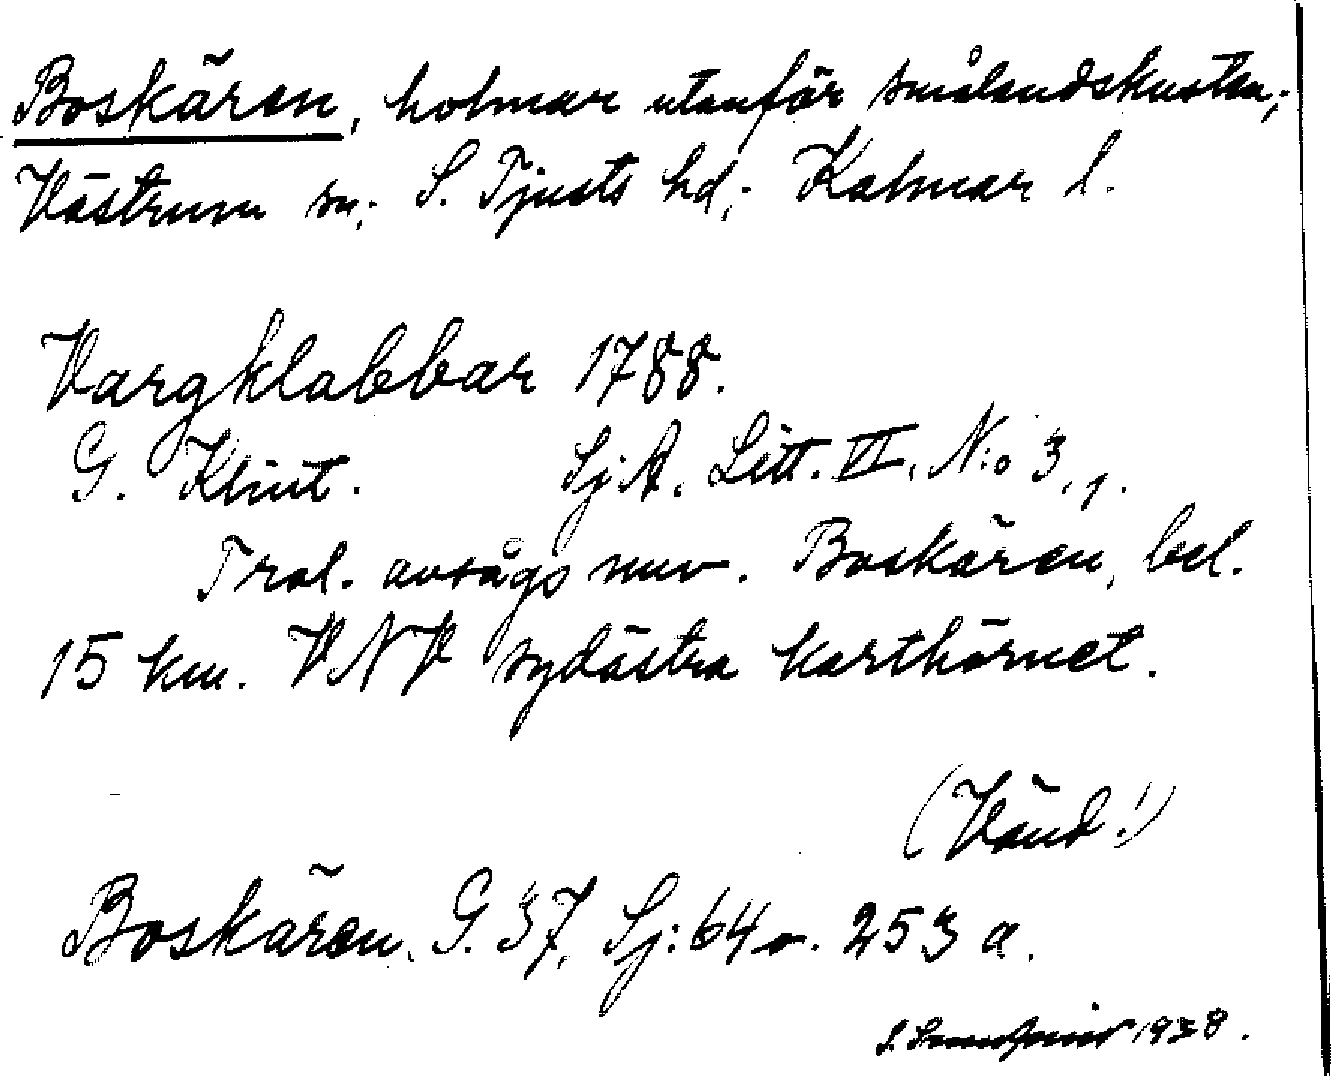 Boskären, holmar utanför smålandskusten;
Västrum sn; S. Tjusts hd; Kalmar l.
Vargklabbar 1788.
G. Klint. Sj.A. Litt. VI, N:o 3, 1.
Trol. avsågs nuv. Boskären, bel.
15 km. VNV sydöstra karthörnet.
(Vänd!)
Boskären. G. 37, Sj: 64 o. 253 a.
1938.